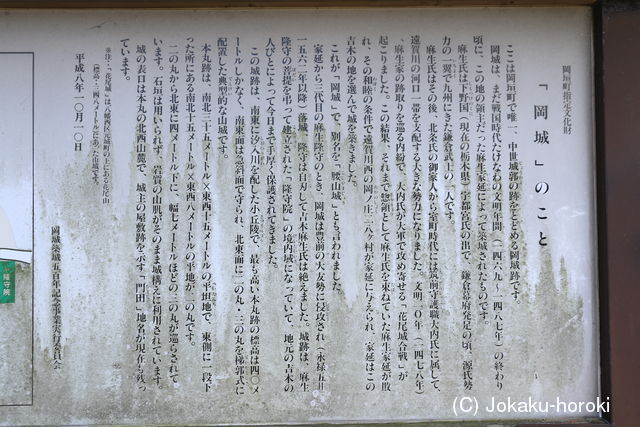 岡垣町指定文化財
「岡城」のこと
ここは岡垣町で唯一、中世城郭の跡をとどめる岡城跡です。
岡城は、まだ戦国時代たけなわの文明年間(一四六九～一四八七年)の終わり
頃に、この地の領主だった麻生家延によって築城されたものです。
麻生氏は下野国(現在の栃木県)宇都宮氏の出で、鎌倉幕府発足の頃、源氏勢
力の一翼で九州にきた鎌倉武士の一人です。
麻生氏はその後、北条氏の御家人から室町時代には筑前守護職大内氏に属して、
遠賀川の河口一帯を支配する大きな勢力になりました。文明一〇年(一四七八年)
、麻生家の跡取りを巡る内紛で、大内氏が大軍で攻め寄せる「花尾城合戦」が
起こりました。この結果、それまで惣領として麻生氏を束ねていた麻生家延が敗
れ、その和睦の条件で遠賀川西の岡ノ庄二八ヶ村が家延に与えられ、家延はこの
吉木の地を選んで城を築きました。
これが「岡城」で、別名を「腰山城」とも言われました。
家延から三代目の麻生隆守のとき、岡城は豊前の大友勢に侵攻され(永禄五年
一五六二年以降)落城、隆守は自刃して吉木麻生氏は絶えました。城跡は、麻生
隆守の菩提を弔って建立された「隆守院」の境内域になっていて、地元の吉木の
人びとによって今日まで手厚く保護されてきました。
この城跡は、南東に矢矧川を配した小丘陵で、最も高い本丸跡の標高は四〇メ
ートルしかなく、南東面は急斜面で守られ、北東面に二の丸・三の丸を梯郭式に
配置した典型的な山城です。
本丸跡は、南北三十五メートル×東西十五メートルの平坦地で、東側に一段下
った所にある南北十五メートル×東西八メートルの平地が二の丸です。
二の丸から北東に四メートル下に、幅七メートルほどの三の丸が巡らされて
います。石垣は用いられず、岩質の山肌がそのまま城構えに利用されています。
城の表口は本丸の北西山麓で、城主の屋敷跡を示す「門田」地名が現在も残っ
ています。
※注:「花尾城」は八幡西区元城町の上にある花尾山
(標高三五一メートル)にあった山城です。
平成八年一〇月一〇日
岡城築城五百年記念事業実行委員会
隆守院
(C) Jokaku-horoki